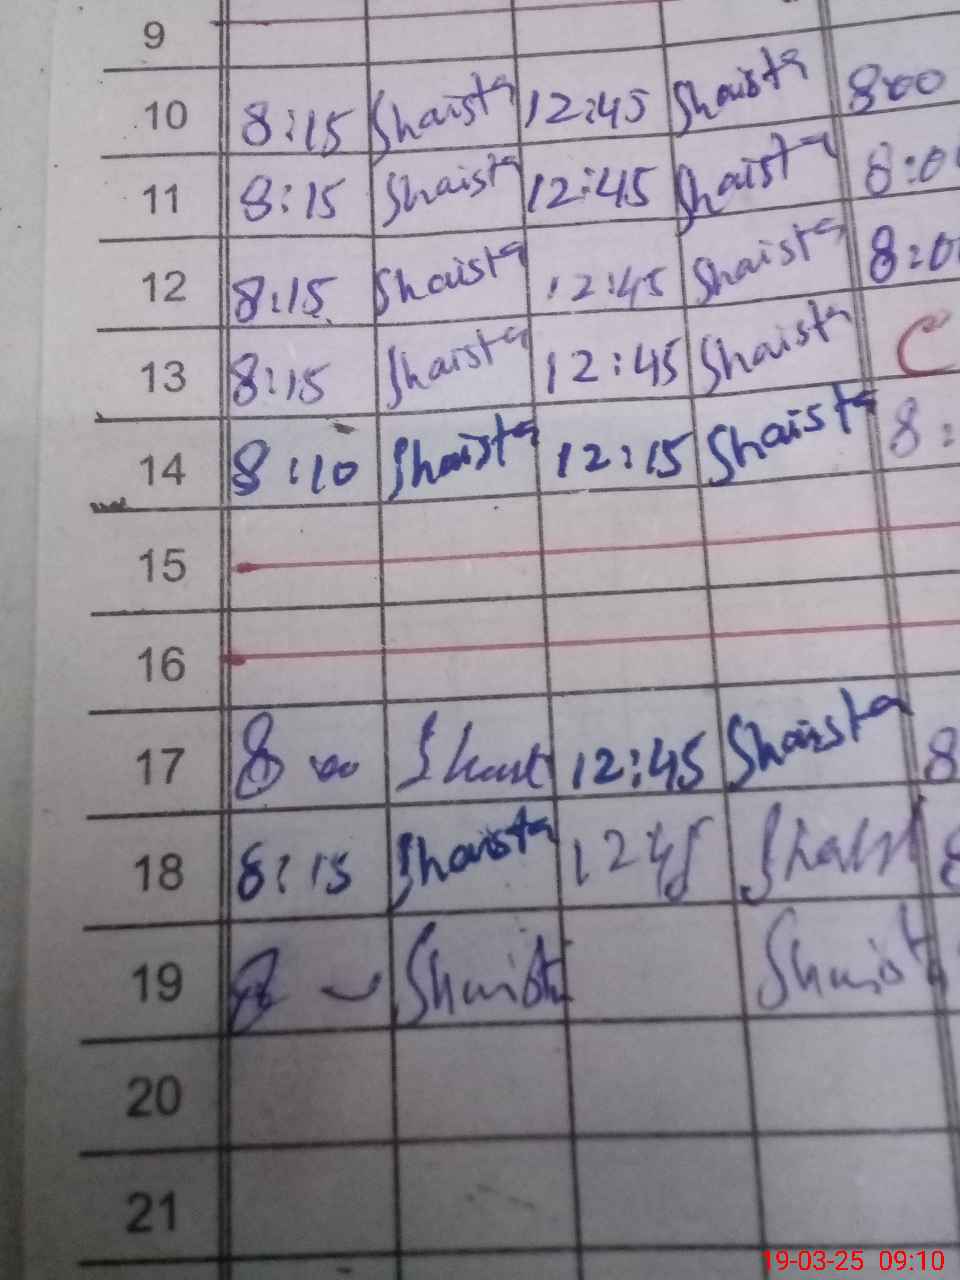 9
10 8:15 Shaista 12:45 Shaista 8:00
11 8:15 Shaista 12:45 Shaista 8:0
12 8:15 Shaista 12:45 Shaista 8:0
13 8:15 Shaista 12:45 Shaista C
14 8:10 Shaista 12:15 Shaista 8:
15
16
17 8 00 Shaist 12:45 Shaista 8
18 8:15 Shaista 1245 Shaist 8
19 8 Shaista Shaista
20
21
19-03-25 09:10